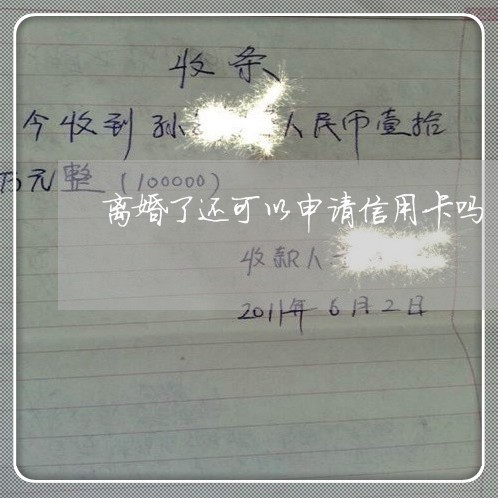 收条
今收到孙 人民币壹拾
万元整(100000)
离婚了还可以申请信用卡吗
收款人
2011年6月2日